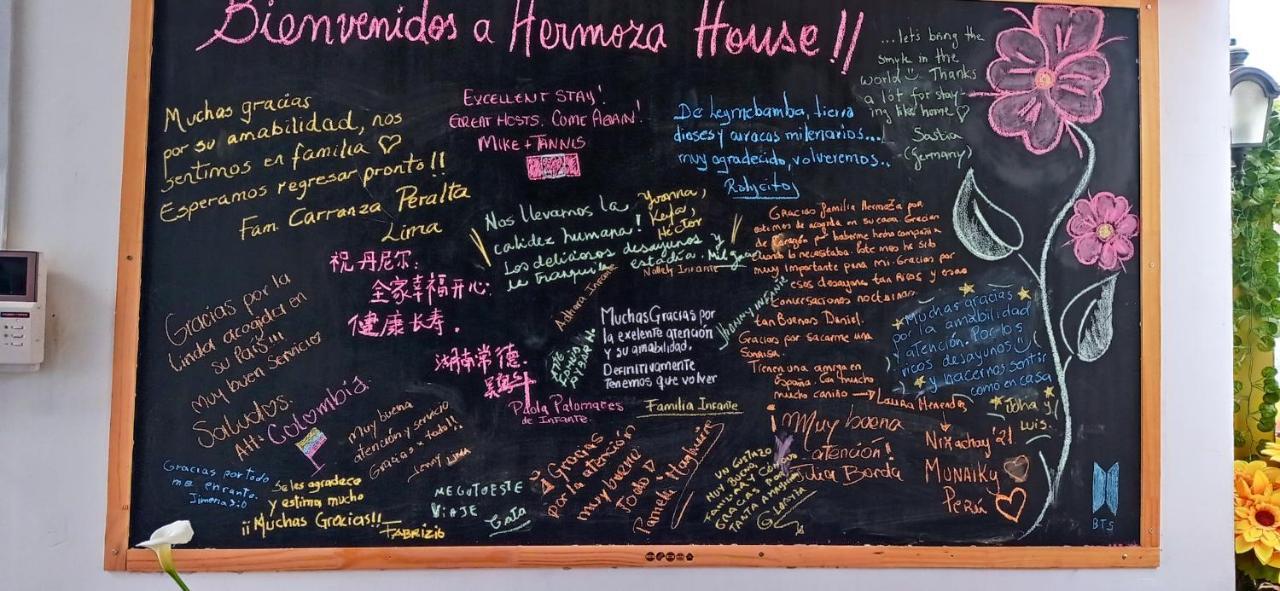 Bienvenidos a Hermoza House!!
Muchas gracias
por su amabilidad, nos
sentimos en familia ♡
Esperamos regresar pronto!!
Fam. Carranza Peralta
Lima
EXCELLENT STAY!
GREAT HOSTS. COME AGAIN!
MIKE + TANNIS
De Leymebamba, tierra
dioses y curacas milenarios...
muy agradecido, volveremos..
Ralycitos
...let's bring the
smyle in the
world Thanks
a lot for stay-
ing like home ♡
Saskia
(Germany)
Nos llevamos la
calidez humana!
Los deliciosos desayunos y
la tranquila estadía.
Yvonna,
Keyla,
Héctor
祝丹尼尔:
全家幸福开心.
健康长寿.
湖南常德.
Gracias por la
linda acogida en
su País!!!
muy buen servicio
Saludos.
Att: Colombia
Muy buena
atención y servicio
Gracias x todo!!
Jenny Lima
Nallely Infante
Anhara Infante
Jhanny Infante
Muchas Gracias por
la exelente atención
y su amabilidad,
Definitivamente
Tenemos que volver
Paola Palomares
de Infante
Familia Infante
Gracias familia Hermoza por
de corazón por haberme hecho compañia
cuando lo necesitaba. Este mes ha sido
muy importante para mi. Gracias por
esos desayunos tan Ricos y esas
Conversaciones nocturnas
tan Buenas Daniel.
Gracias por sacarme una
Sonrisa.
Tienen una amiga en
España. Con mucho
mucho cariño → Laura Menendes
Muchas gracias
por la amabilidad
y atención. Por los
ricos desayunos
y hacernos sentir
como en casa
Joha y
Luis.
Gracias por todo
me encanto.
Jimena :)
Se les agradece
y estima mucho
¡¡Muchas Gracias!!
FABRIZIO
ME GUTO ESTE
VIAJE
Cata
Gracias
por la atención
muy bueno
todo
Pamela Hayhuin
UN GUSTAZO
MUY BUENO,
FAMILIAR Y COMODO
GRACIAS POR
TANTA AMABILIDAD
Glorya
¡Muy buena
atención!
Julia Borda
Nixachay '21
MUNAIKY
Perú
BTS